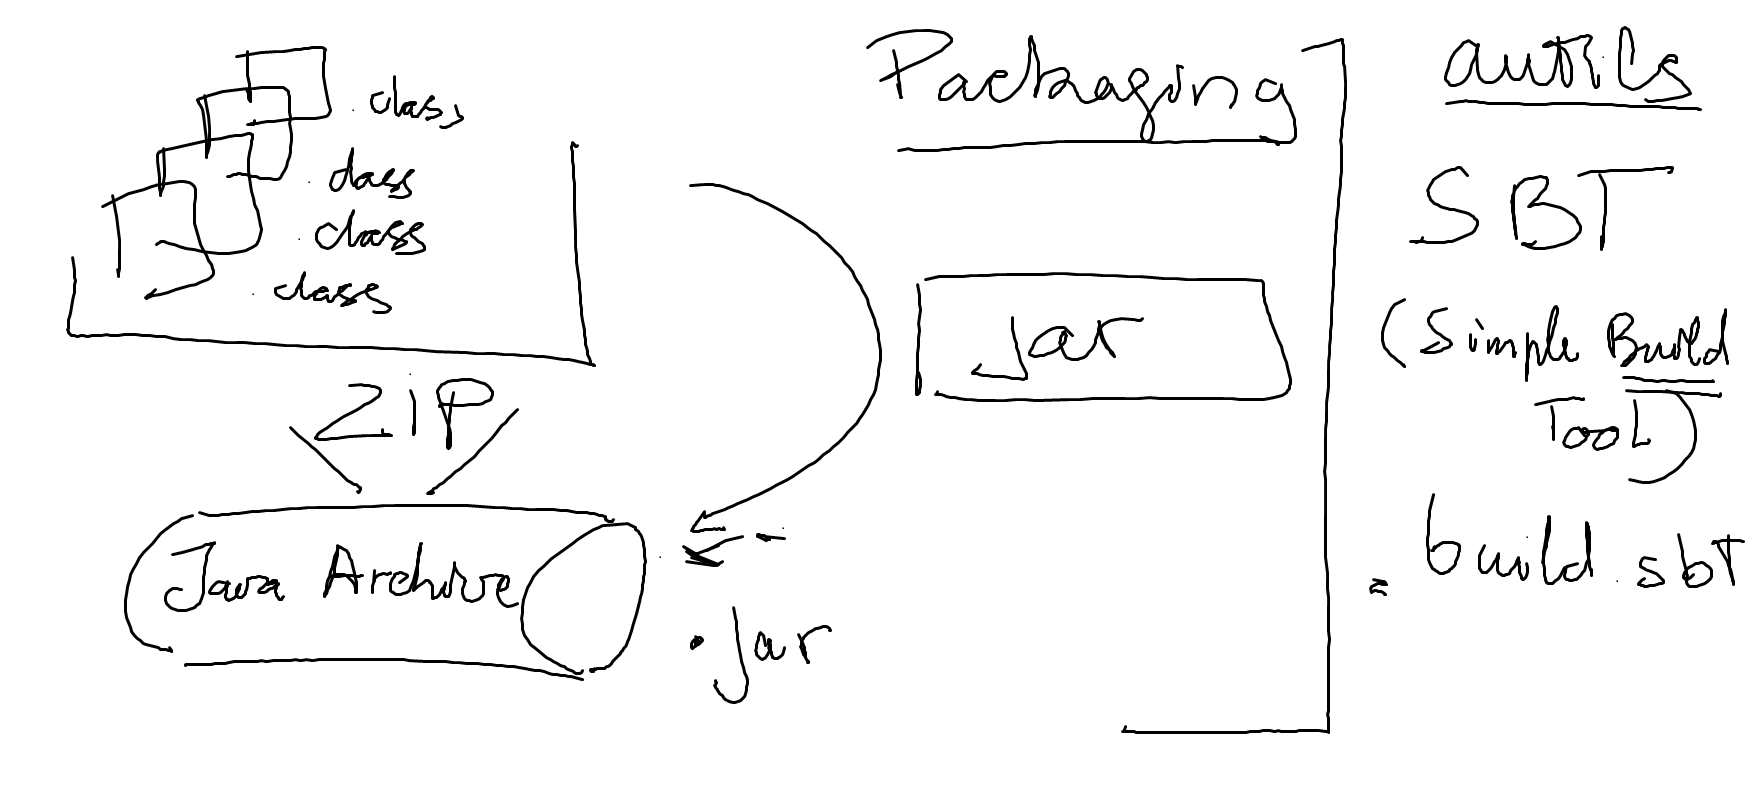 .class
.class
.class
.class
ZIP
Java Archive
.jar
Packaging
jar
SBT
(Simple Build
Tool)
= build.sbt